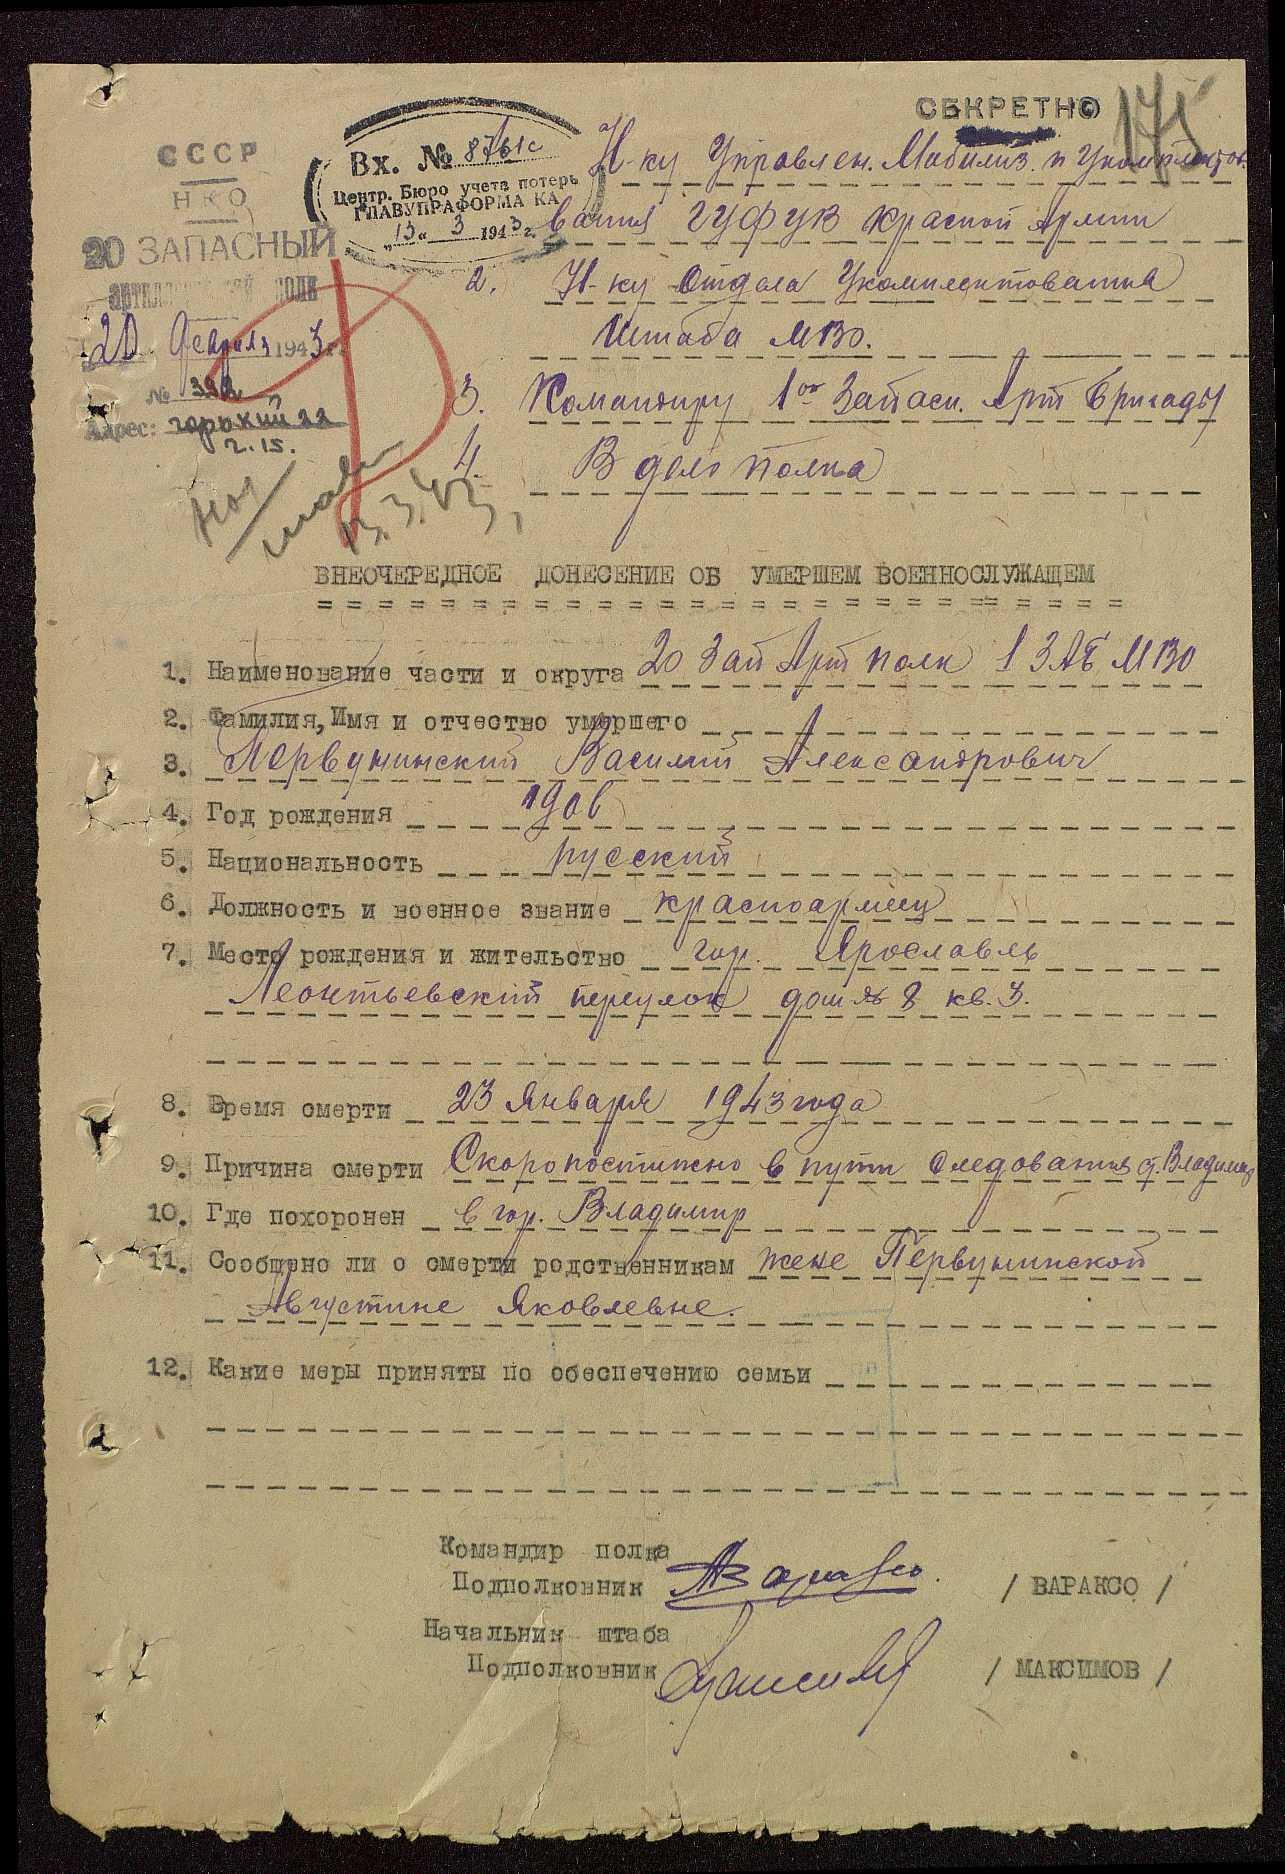 СЕКРЕТНО
175
СССР
НКО
20 ЗАПАСНЫЙ
артиллерийский полк
20 февраля 1943 г.
№ 392
Адрес: горький 22
2.15.
Вх. № 8761с
Центр. Бюро учета потерь
ГЛАВУПРАФОРМА КА
„13“ 3 1943 г.
Н-ку Управлен. Мобилиз. и Укомплектов.
вания ГУФУВ Красной Армии
2. Н-ку Отдела Укомплектования
Штаба МВО.
3. Командиру 1ой Запасн. Арт Бригады
4. В дело полка
13.3.43.
ВНЕОЧЕРЕДНОЕ ДОНЕСЕНИЕ ОБ УМЕРШЕМ ВОЕННОСЛУЖАЩЕМ
1. Наименование части и округа 20 Зап Арт полк 1 ЗАБ МВО
2. Фамилия, Имя и отчество умершего
3. Первунинский Василий Александрович
4. Год рождения 1906
5. Национальность русский
6. Должность и военное звание красноармеец
7. Место рождения и жительство гор. Ярославль
Леонтьевский переулок дом № 8 кв. 3.
8. Время смерти 23 Января 1943 года
9. Причина смерти Скоропостижно в пути следования ст. Владимир
10. Где похоронен в гор. Владимир
11. Сообщено ли о смерти родственникам жене Первунинской
Августине Яковлевне.
12. Какие меры приняты по обеспечению семьи
Командир полка
Подполковник / ВАРАКСО /
Начальник штаба
Подполковник / МАКСИМОВ /